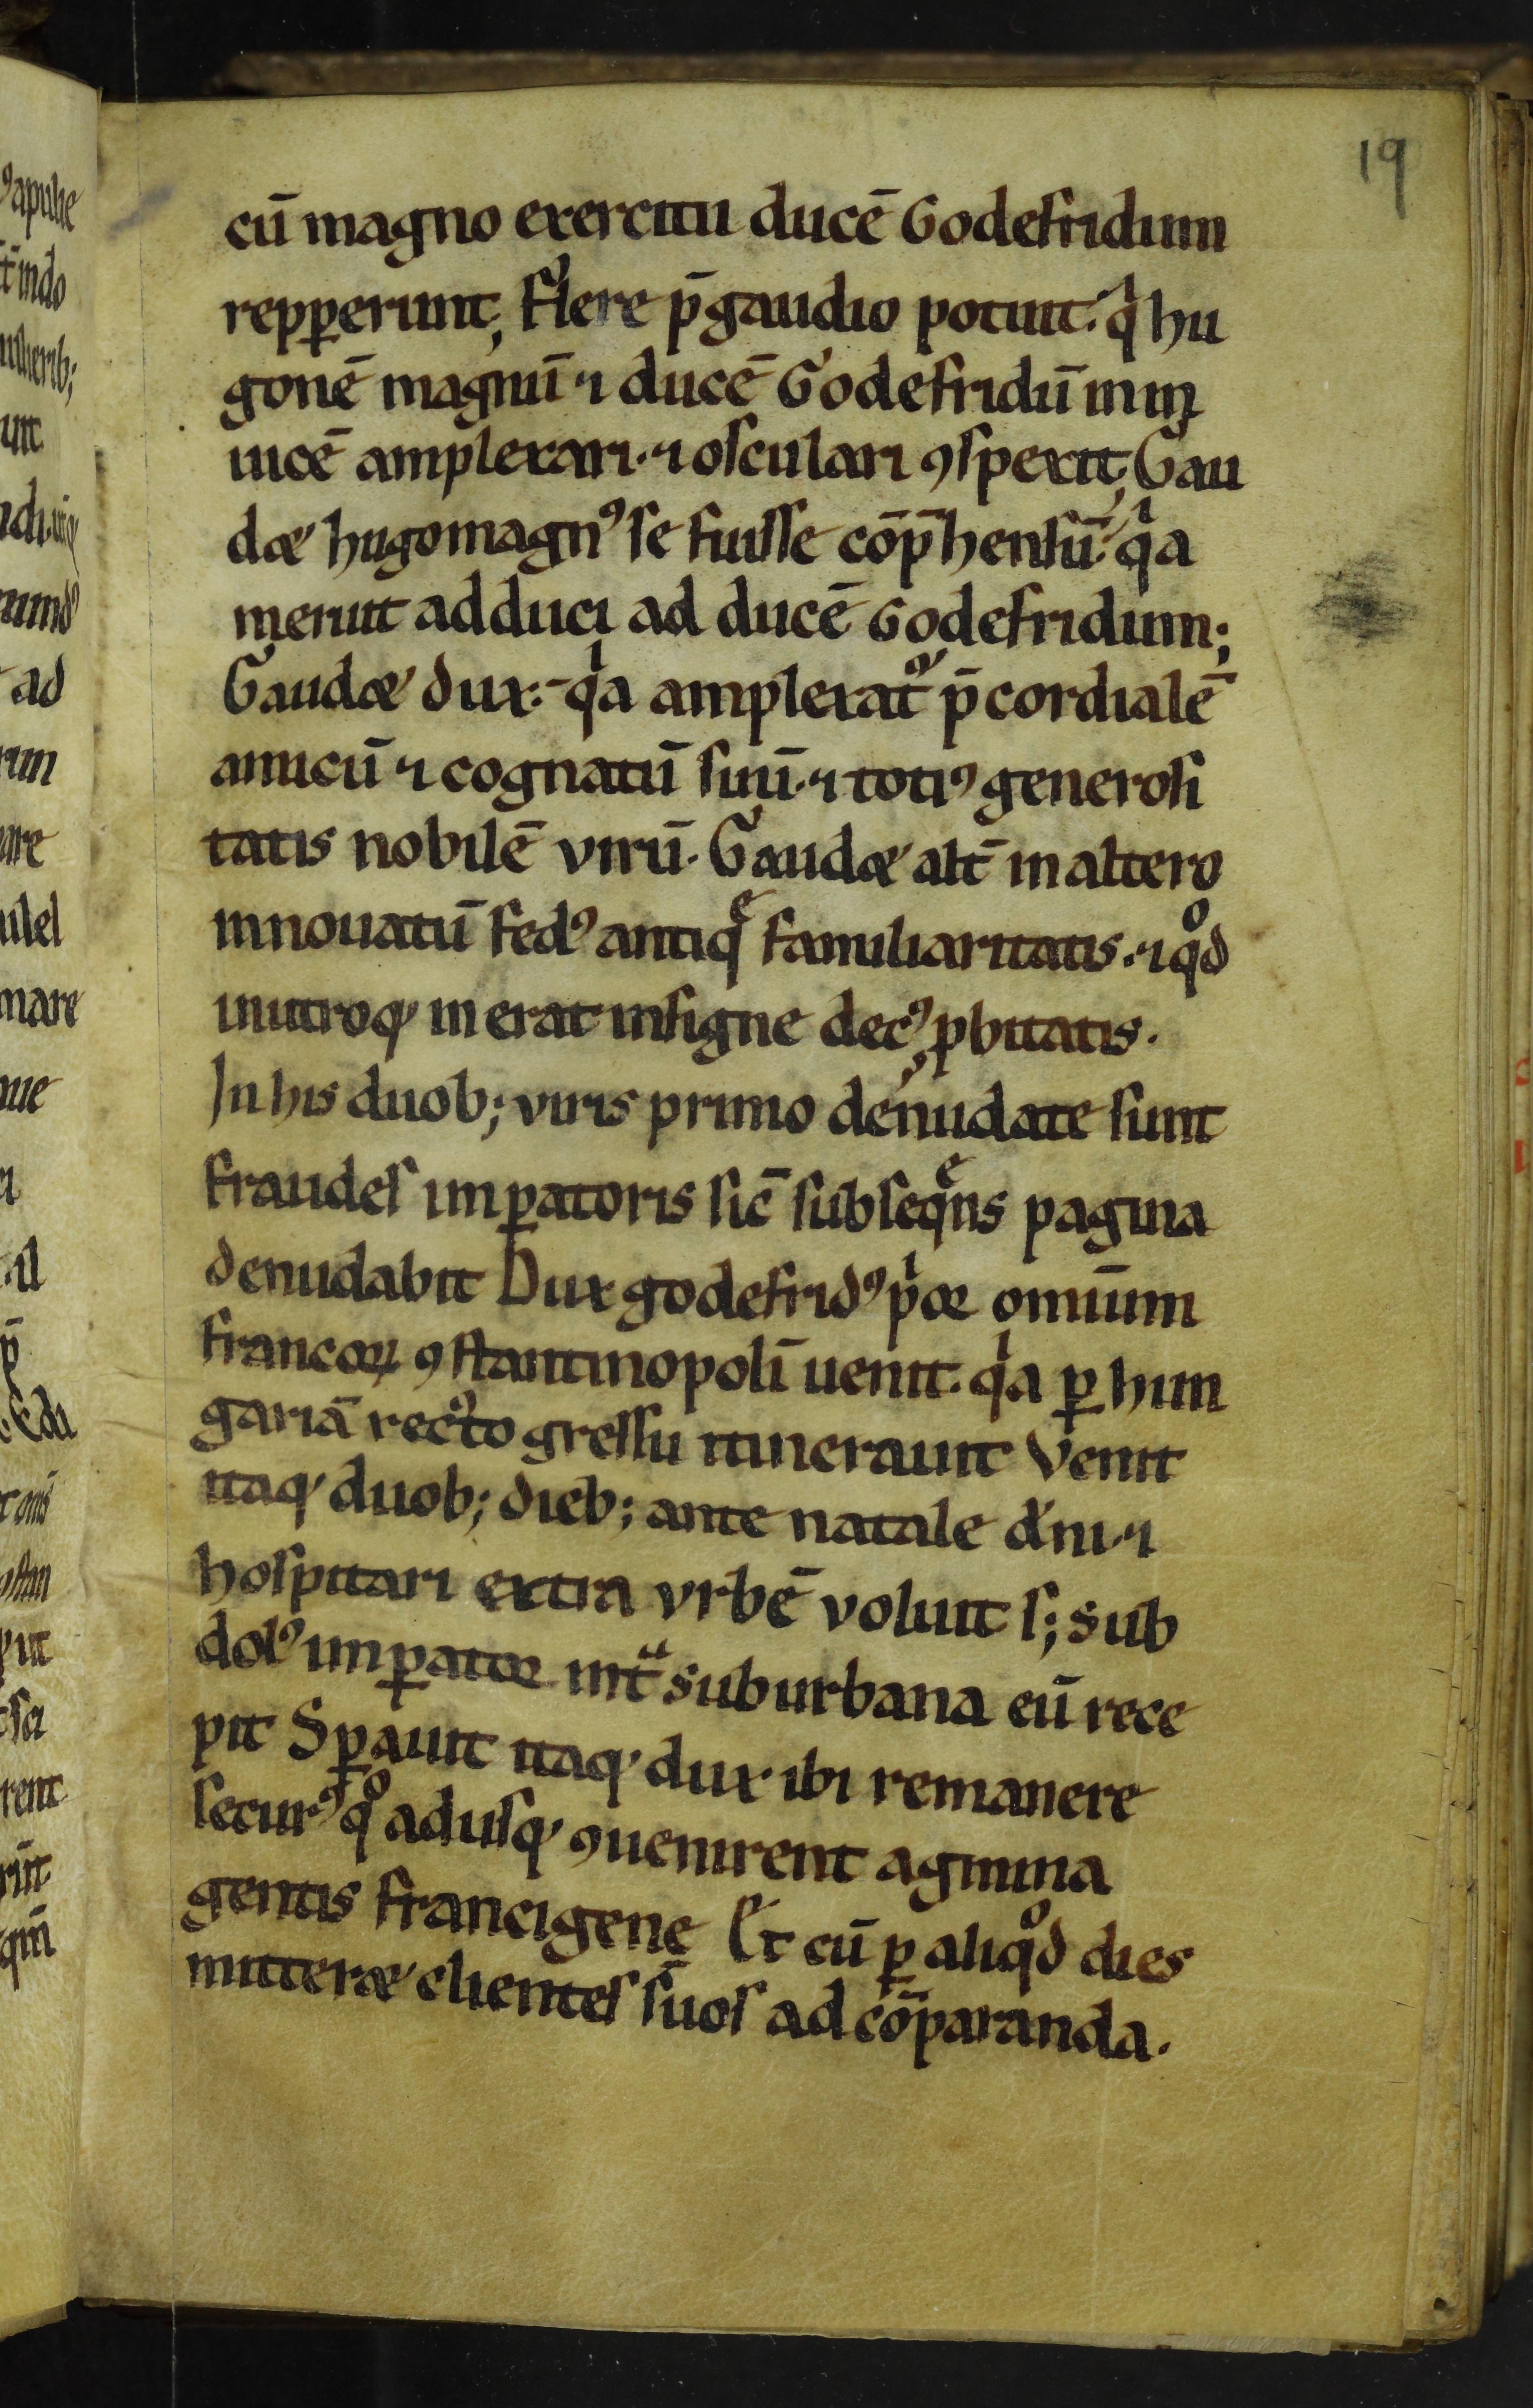 19
cū magno exercitu ducē Godefridum
repꝑerunt, Flere p̄ gaudio potuit. qͥ hu
gonē magnū ⁊ ducē Godefridū inin
uicē amplexari. ⁊ osculari ꝯspexit, Gau
d& hugo magnꝰ se fuisse cōp̄hensū. qͥa
meruit adduci ad ducē Godefridum;
Gaud& dux. qͥa amplexat᷑ p̄cordialē
amicū ⁊ cognatū suū. ⁊ totiꝰ generosi
tatis nobilē virū. Gaud& alt̄ in altero
innouatū fedꝰ antiqͤ familiaritatis. ⁊ qͦd
inutroq; inerat insigne decꝰ ꝓbitatis.
In his duob; viris primo denudate sunt
fraudes imꝑatoris sic̄ subseqͤns pagina
denudabit Dux godefridꝰ pͥor omnium
francoꝝ ꝯstantinopolī uenit. qͥa ꝑ hun
gariā recto gressu itinerauit Venit
itaq; duob; dieb; ante natale dn̄i. ⁊
hospitari extra vrbē voluit s; sub
dolꝰ imꝑator intᷓ suburbana eū rece
pit Sꝑauit itaq; dux ibi remanere
securꝰ qͦ adusq; ꝯuenirent agmina
gentis francigenę Et cū ꝑ aliqͦd dies
mitter& clientes suos ad cōparanda.